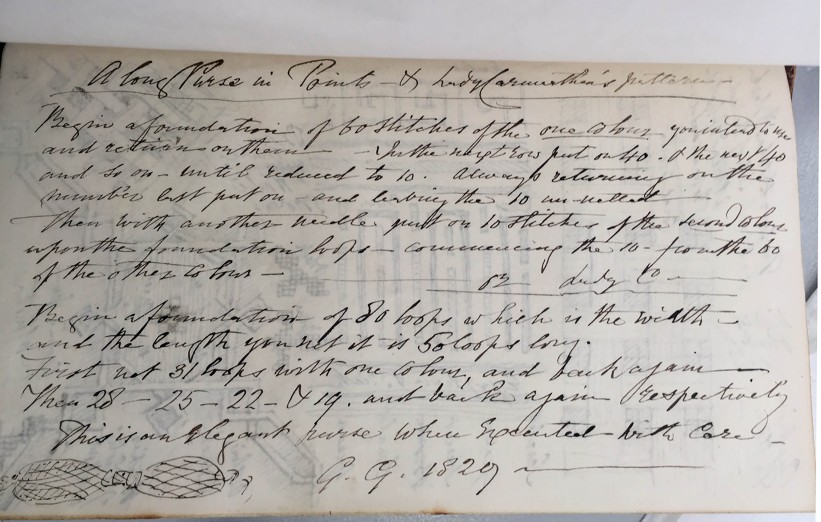 A long Purse in Points - & Lady Carmarthen's pattern -
Begin a foundation of 60 stitches of the one colour you intend to use
and return on them - In the next row put on 40 . & the next 40
and so on - until reduced to 10 . always returning on the
number last put on and leaving the 10 un-netted -
Then with another needle put on 10 stitches of the second colour
upon the foundation loops - commencing the 10 - from the 60
of the other colour -
or Lady C -
Begin a foundation of 80 loops which is the width -
and the length you net it is 50 loops long .
First net 31 loops with one colour, and back again -
Then 28 - 25 - 22 - & 19 . and back again respectively
This is an Elegant purse when Executed with Care -
G. G. 1829